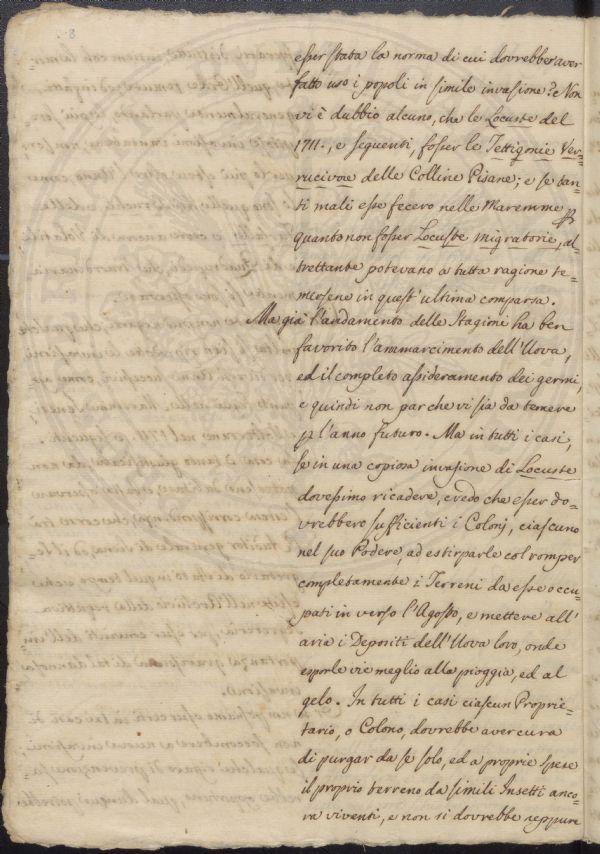 8
esser stata la norma di cui dovrebber aver
fatto uso i popoli in simile invasione? Non
vi è dubbio alcuno, che le Locuste del
1711., e seguenti, fosser le Tettigonie Ver-
rucivore delle Colline Pisane; e se tan-
ti mali esse fecero nelle Maremme, p
quanto non fosser Locuste migratorie, al-
trettante potevano a tutta ragione te-
mersene in quest'ultima comparsa.
Ma già l'andamento delle Stagioni ha ben
favorito l'ammarcimento dell'Uova,
ed il completo assideramento dei germi,
e quindi non par che vi sia da temere
p l'anno futuro. Ma in tutti i casi,
se in una copiosa invasione di Locuste
dovessimo ricadere, credo che esser do-
vrebbero sufficienti i Colonj, ciascuno
nel suo Podere, ad estirparle col romper
completamente i Terreni da esse occu-
pati in verso l'Agosto, e mettere all'
aria i Depositi dell'Uova loro, onde
esporle vie meglio alla pioggia, ed al
gelo. In tutti i casi ciascun Proprie-
tario, o Colono, dovrebbe aver cura
di purgar da se solo, ed a proprie spese
il proprio terreno da simili Insetti anco-
ra viventi, e non si dovrebbe neppure